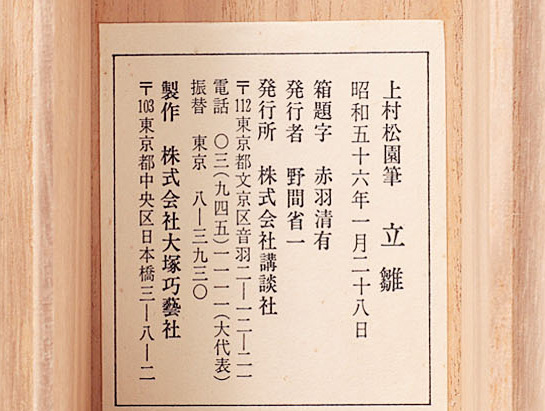 上村松園筆　立雛
昭和五十六年一月二十八日
箱題字　赤羽清有
発行者　野間省一
発行所　株式会社講談社
〒112東京都文京区音羽二―一二―二一
電話　〇三(九四五)一一一一(大代表)
振替　東京　八―三九三〇
製作　株式会社大塚巧藝社
〒103東京都中央区日本橋三―八―二